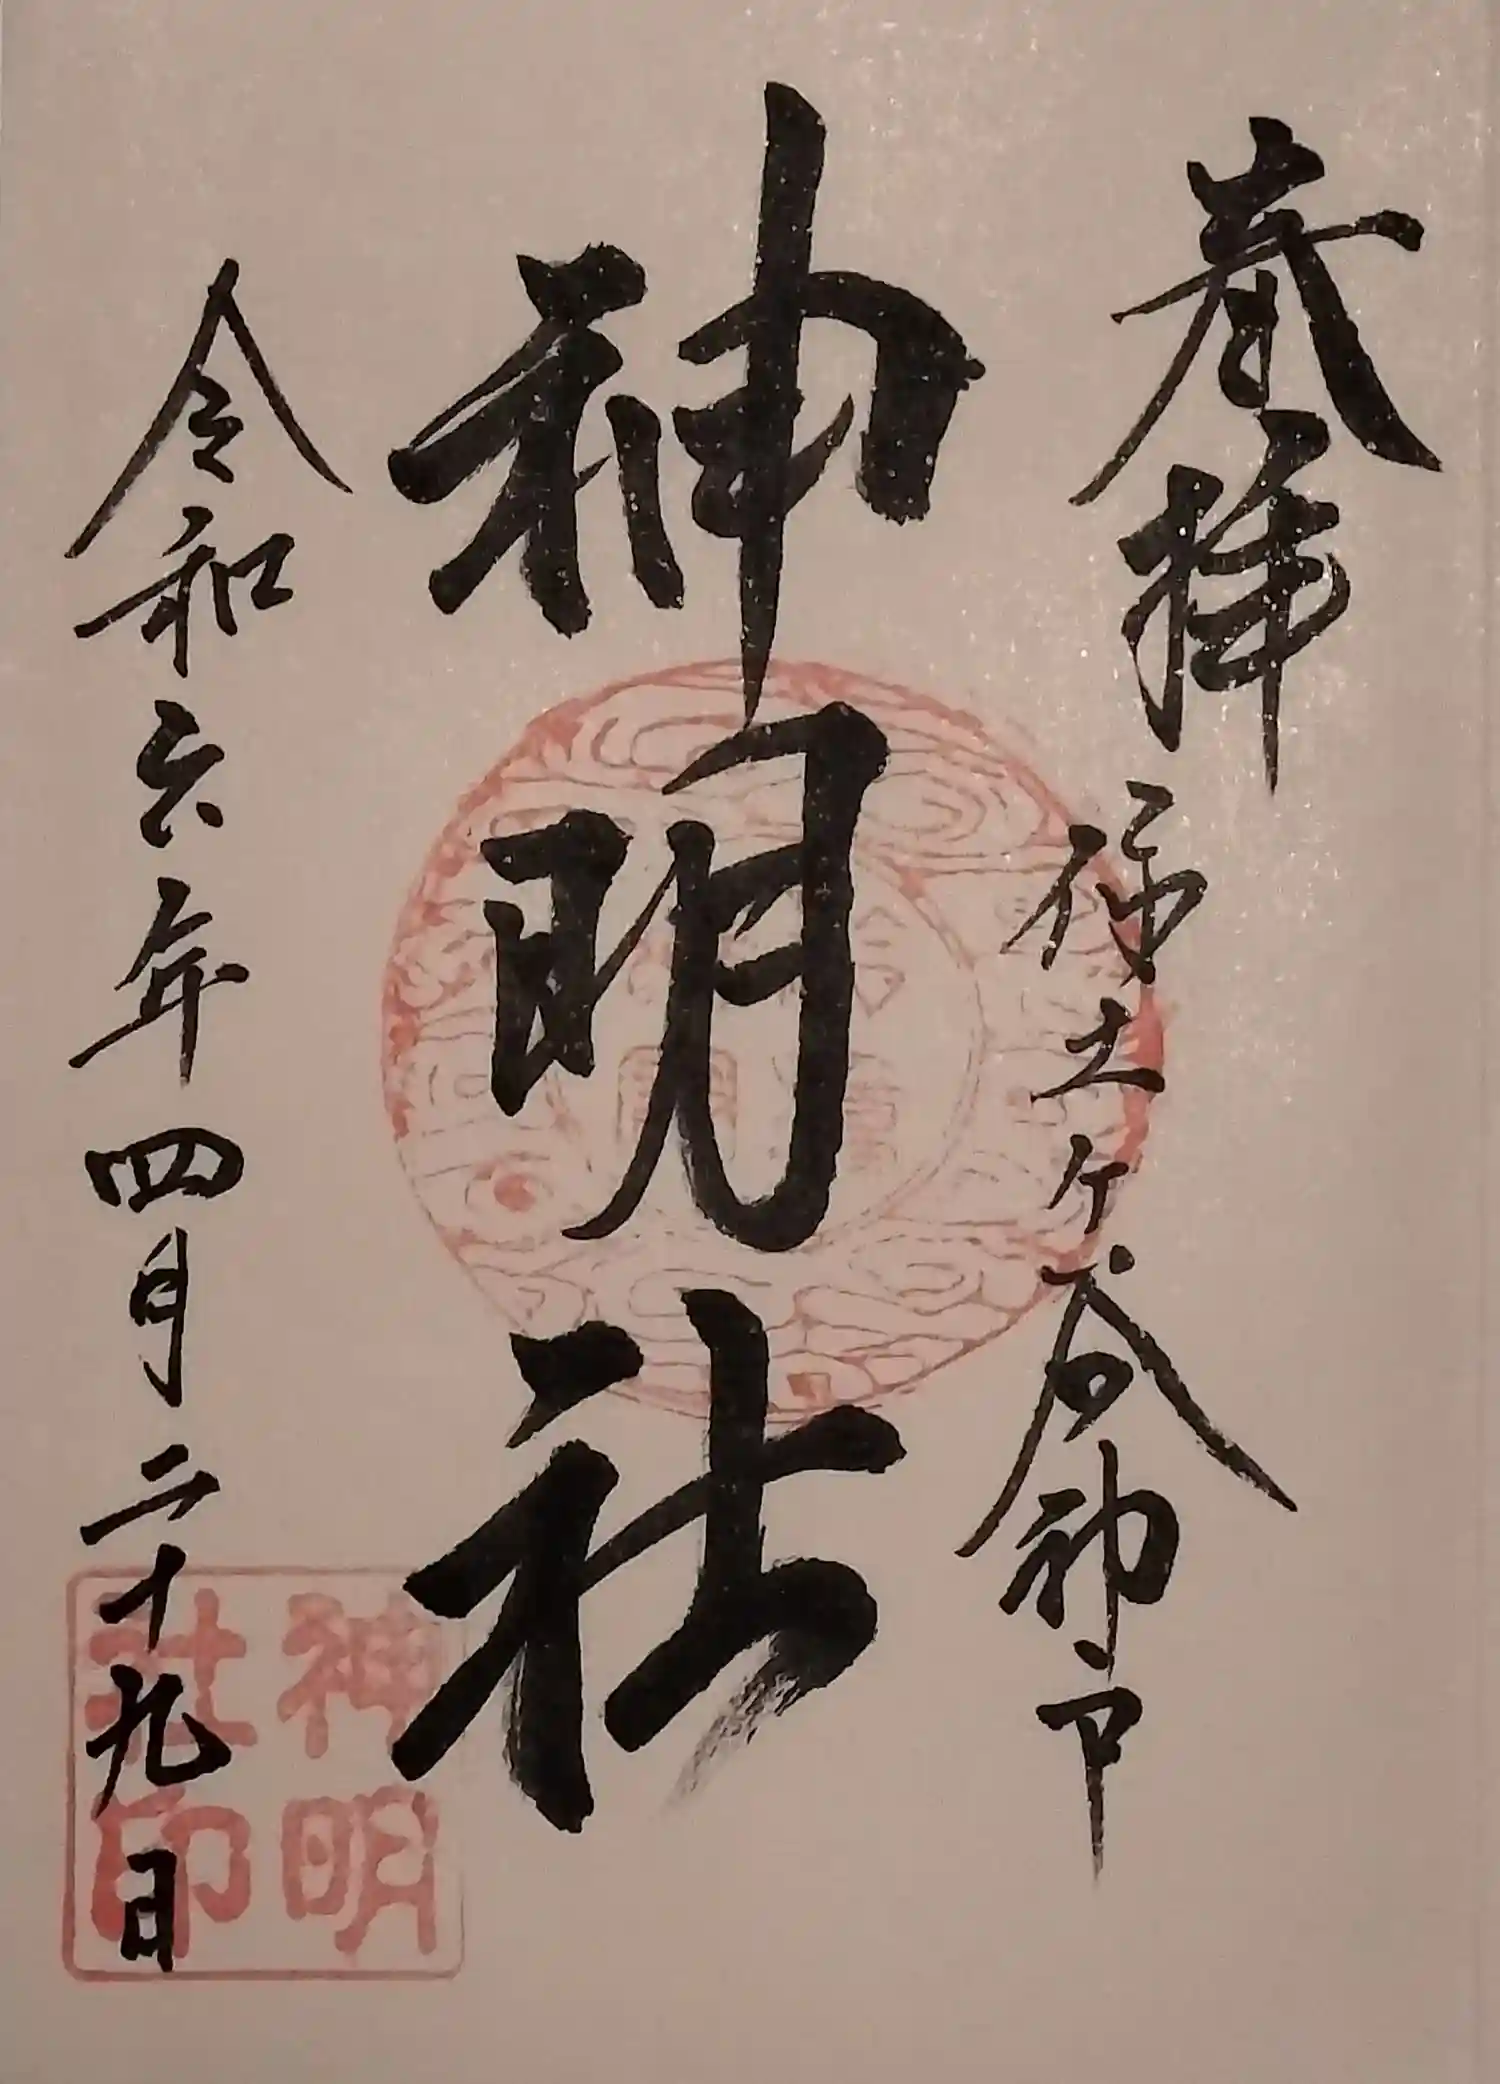 奉拝 保土ケ谷神戸
神明社
令和六年四月二十九日
神明
社印